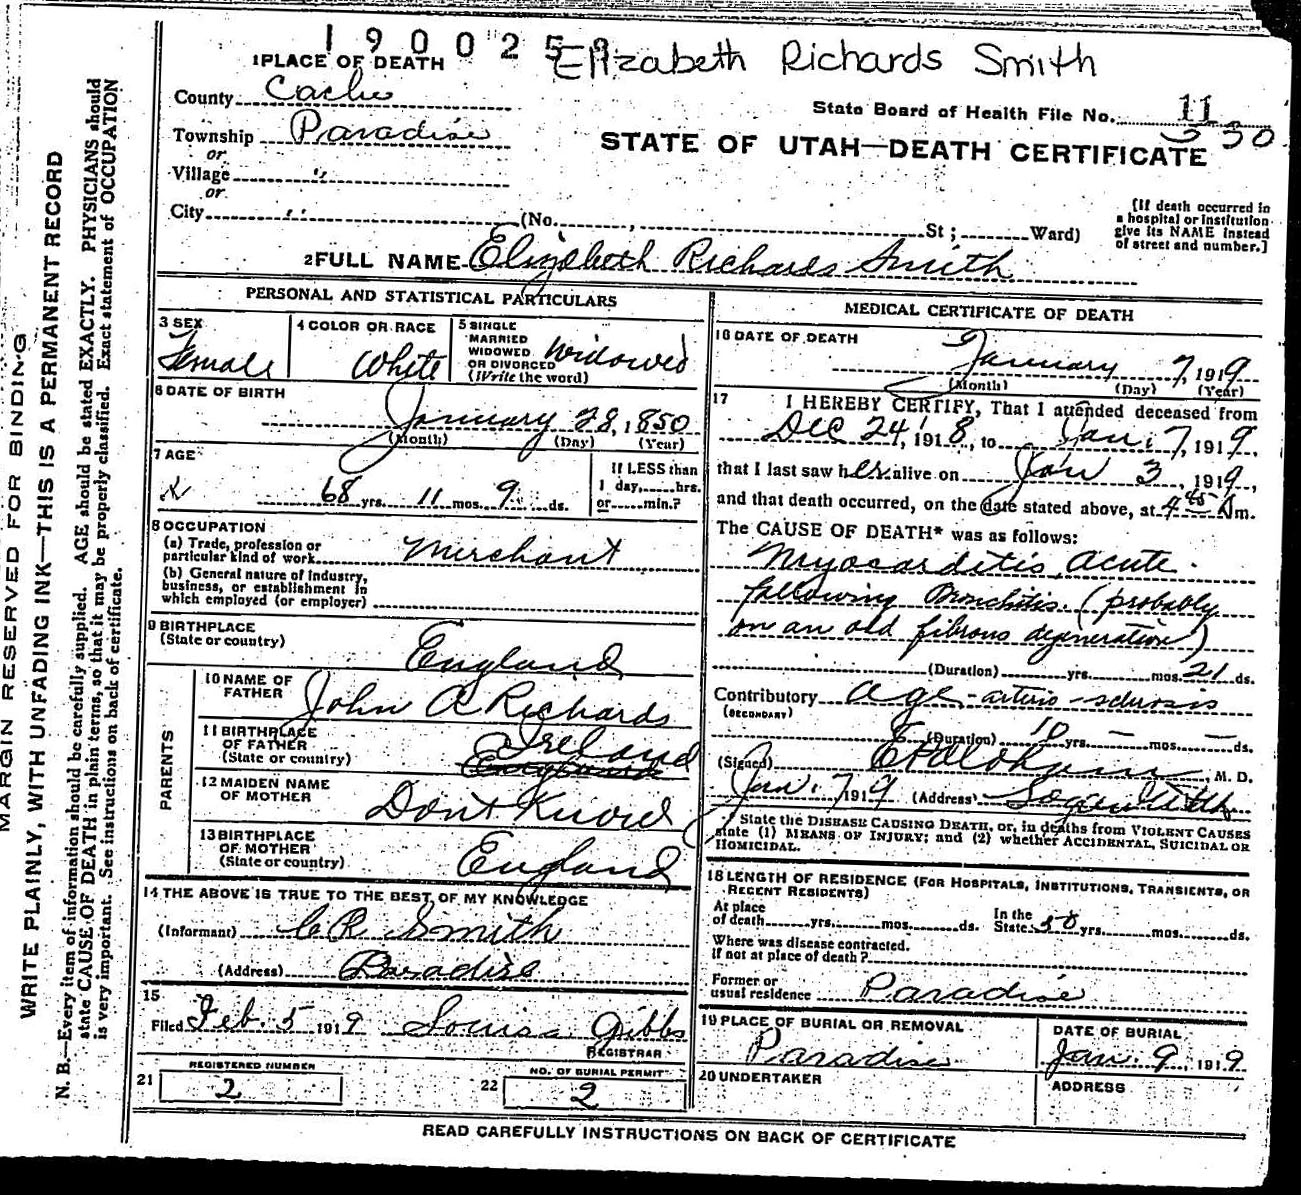 1 9 0 0 2 5 9
Elizabeth Richards Smith
1 PLACE OF DEATH
County Cache
State Board of Health File No. 11
330
Township Paradise
STATE OF UTAH—DEATH CERTIFICATE
or
Village "
or
City " (No. , St ; Ward)
(If death occurred in
a hospital or institution
give its NAME instead
of street and number.]
2 FULL NAME Elizabeth Richards Smith
PERSONAL AND STATISTICAL PARTICULARS
3 SEX
Female
4 COLOR OR RACE
White
5 SINGLE
MARRIED
WIDOWED
OR DIVORCED
(Write the word)
Widowed
6 DATE OF BIRTH
January 28, 1850
(Month) (Day) (Year)
7 AGE
68 yrs. 11 mos. 9 ds.
If LESS than
1 day, hrs.
or min.?
8 OCCUPATION
(a) Trade, profession or
particular kind of work Merchant
(b) General nature of industry,
business, or establishment in
which employed (or employer)
9 BIRTHPLACE
(State or country) England
PARENTS
10 NAME OF
FATHER John A Richards
11 BIRTHPLACE
OF FATHER
(State or country) Ireland
England
12 MAIDEN NAME
OF MOTHER Don't Know
13 BIRTHPLACE
OF MOTHER
(State or country) England
14 THE ABOVE IS TRUE TO THE BEST OF MY KNOWLEDGE
(Informant) C R Smith
(Address) Paradise
15
Filed Feb. 5 1919 Louisa Gibbs
REGISTRAR
21 REGISTERED NUMBER
2
22 NO. OF BURIAL PERMIT
2
MEDICAL CERTIFICATE OF DEATH
16 DATE OF DEATH
January 7, 1919
(Month) (Day) (Year)
17 I HEREBY CERTIFY, That I attended deceased from
Dec 24, 1918, to Jan. 7, 1919,
that I last saw her alive on Jan 3, 1919,
and that death occurred, on the date stated above, at 4 45 Am.
The CAUSE OF DEATH* was as follows:
Myocarditis, acute.
following Bronchitis. (probably
on an old fibrous degeneration)
(Duration) yrs. mos. 21 ds.
Contributory age - arterio-sclerosis
(SECONDARY)
(Duration) 10 yrs. — mos. — ds.
(Signed) , M. D.
Jan. 7 1919 (Address) Logan Utah
State the DISEASE CAUSING DEATH, or, in deaths from VIOLENT CAUSES
state (1) MEANS OF INJURY; and (2) whether ACCIDENTAL, SUICIDAL OR
HOMICIDAL.
18 LENGTH OF RESIDENCE (FOR HOSPITALS, INSTITUTIONS, TRANSIENTS, OR
RECENT RESIDENTS)
At place
of death yrs. mos. ds.
In the
State 50 yrs. mos. ds.
Where was disease contracted.
if not at place of death?
Former or
usual residence Paradise
19 PLACE OF BURIAL OR REMOVAL
Paradise
DATE OF BURIAL
Jan. 9, 1919
20 UNDERTAKER
ADDRESS
READ CAREFULLY INSTRUCTIONS ON BACK OF CERTIFICATE
MARGIN RESERVED FOR BINDING
WRITE PLAINLY, WITH UNFADING INK—THIS IS A PERMANENT RECORD
N. B.—Every item of information should be carefully supplied. AGE should be stated EXACTLY. PHYSICIANS should
state CAUSE OF DEATH in plain terms, so that it may be properly classified. Exact statement of OCCUPATION
is very important. See instructions on back of certificate.